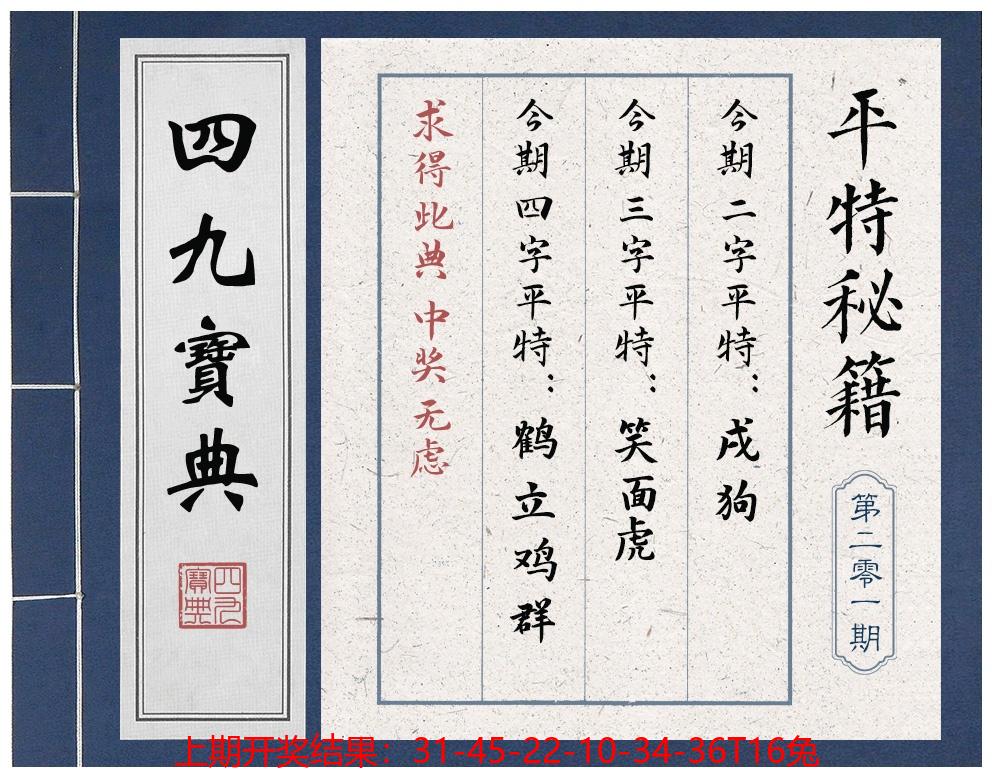 平特秘籍
第二零一期
今期二字平特：戌狗
今期三字平特：笑面虎
今期四字平特：鹤立鸡群
求得此典 中奖无虑
四九寶典
四九
寶典
上期开奖结果：31-45-22-10-34-36T16兔